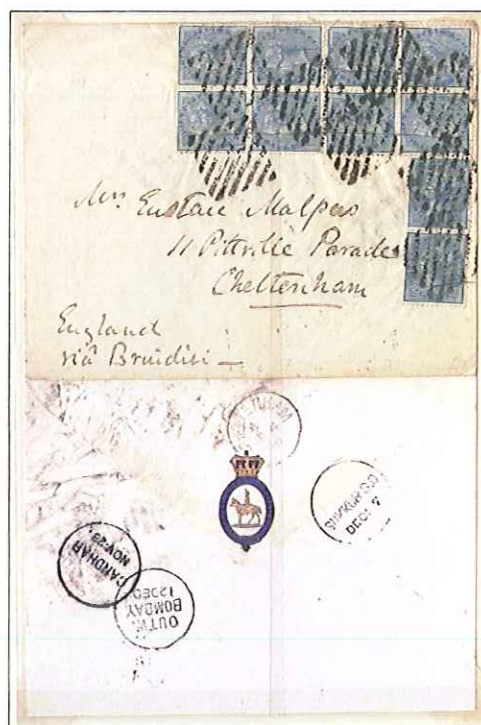 Mrs Eustace Malpas
11 Pittville Parade
Cheltenham
England
viâ Brindisi
SUKKUR
DEC: 7
CANDHAR
NOV: 29
OUTW.
BOMBAY
12 DEC